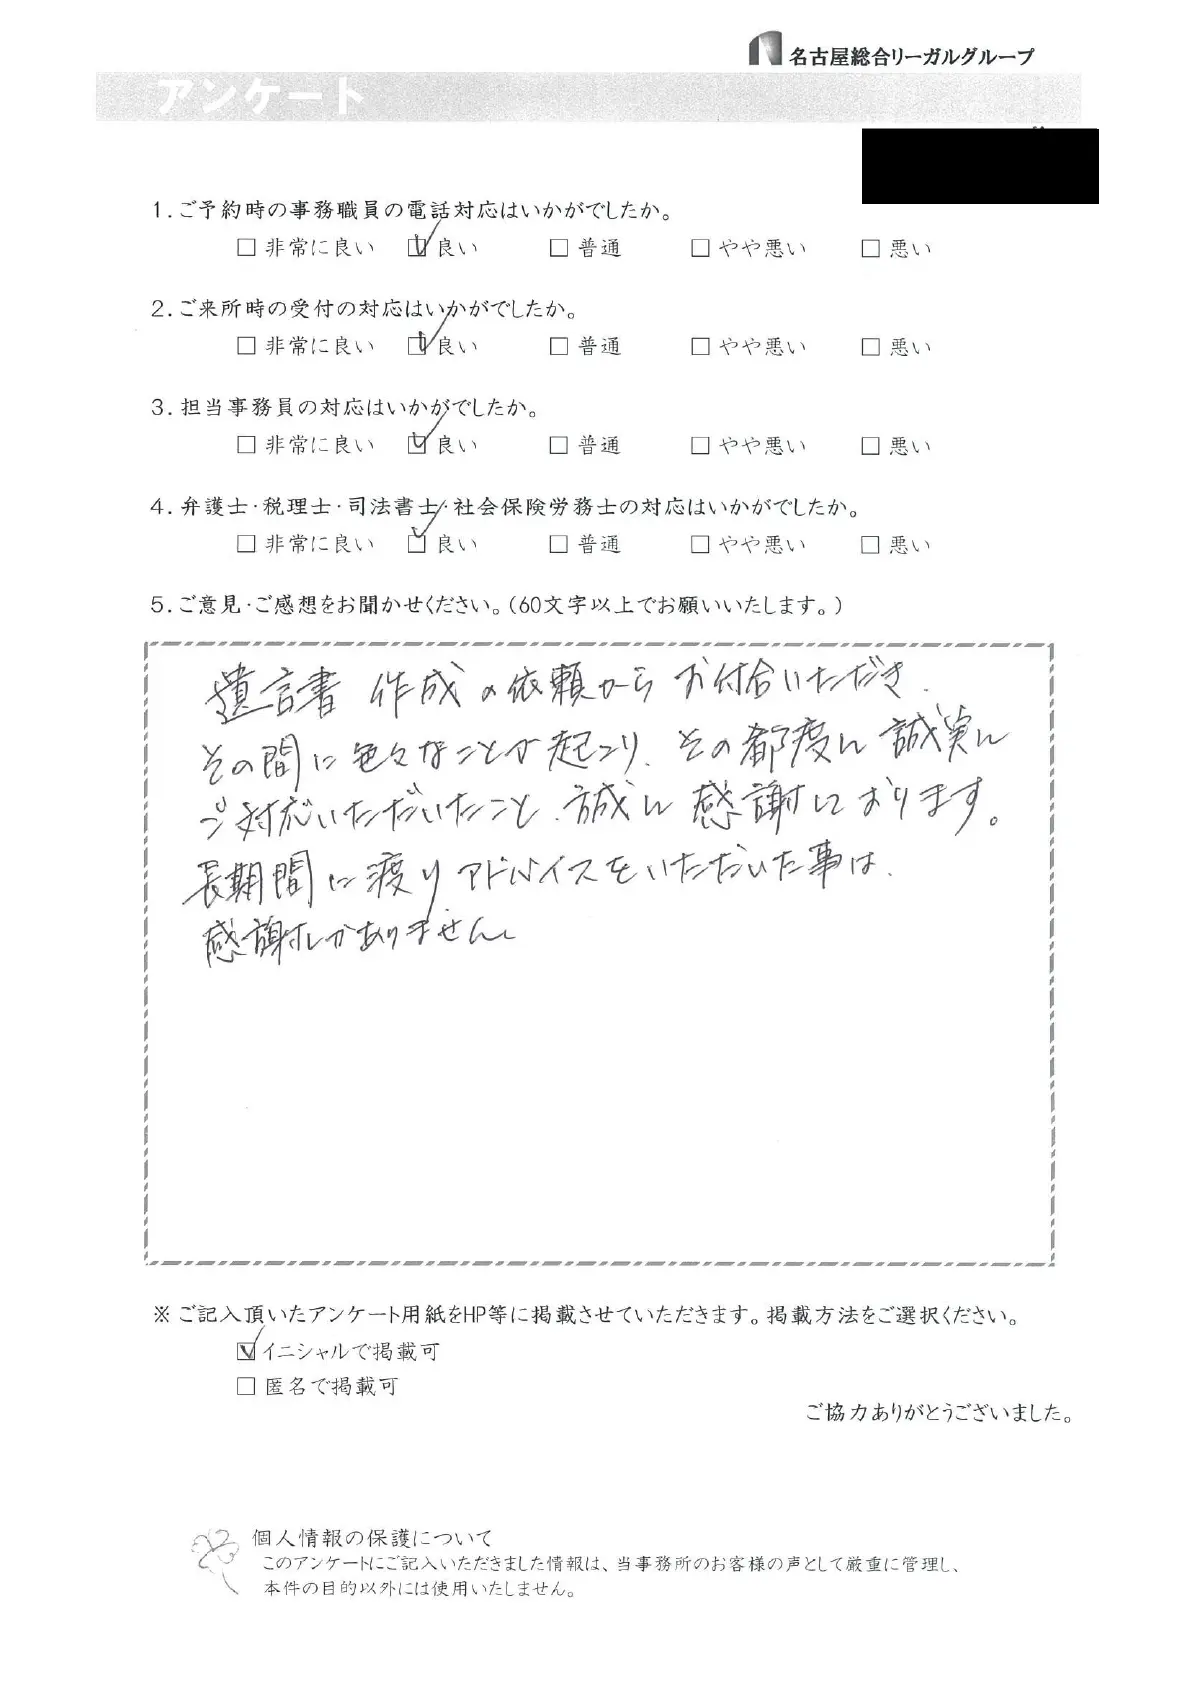 名古屋総合リーガルグループ
アンケート
1.ご予約時の事務職員の電話対応はいかがでしたか。
□ 非常に良い ☑ 良い □ 普通 □ やや悪い □ 悪い
2.ご来所時の受付の対応はいかがでしたか。
□ 非常に良い ☑ 良い □ 普通 □ やや悪い □ 悪い
3.担当事務員の対応はいかがでしたか。
□ 非常に良い ☑ 良い □ 普通 □ やや悪い □ 悪い
4.弁護士・税理士・司法書士・社会保険労務士の対応はいかがでしたか。
□ 非常に良い ☑ 良い □ 普通 □ やや悪い □ 悪い
5.ご意見・ご感想をお聞かせください。(60文字以上でお願いいたします。)
遺言書 作成の依頼からお付合いいただき、
その間に色々なことが起こり、その都度に誠実に
ご対応いただいたこと、誠に感謝しております。
長期間に渡りアドバイスをいただいた事は、
感謝しかありません。
※ ご記入頂いたアンケート用紙をHP等に掲載させていただきます。掲載方法をご選択ください。
☑ イニシャルで掲載可
□ 匿名で掲載可
ご協力ありがとうございました。
個人情報の保護について
このアンケートにご記入いただきました情報は、当事務所のお客様の声として厳重に管理し、
本件の目的以外には使用いたしません。